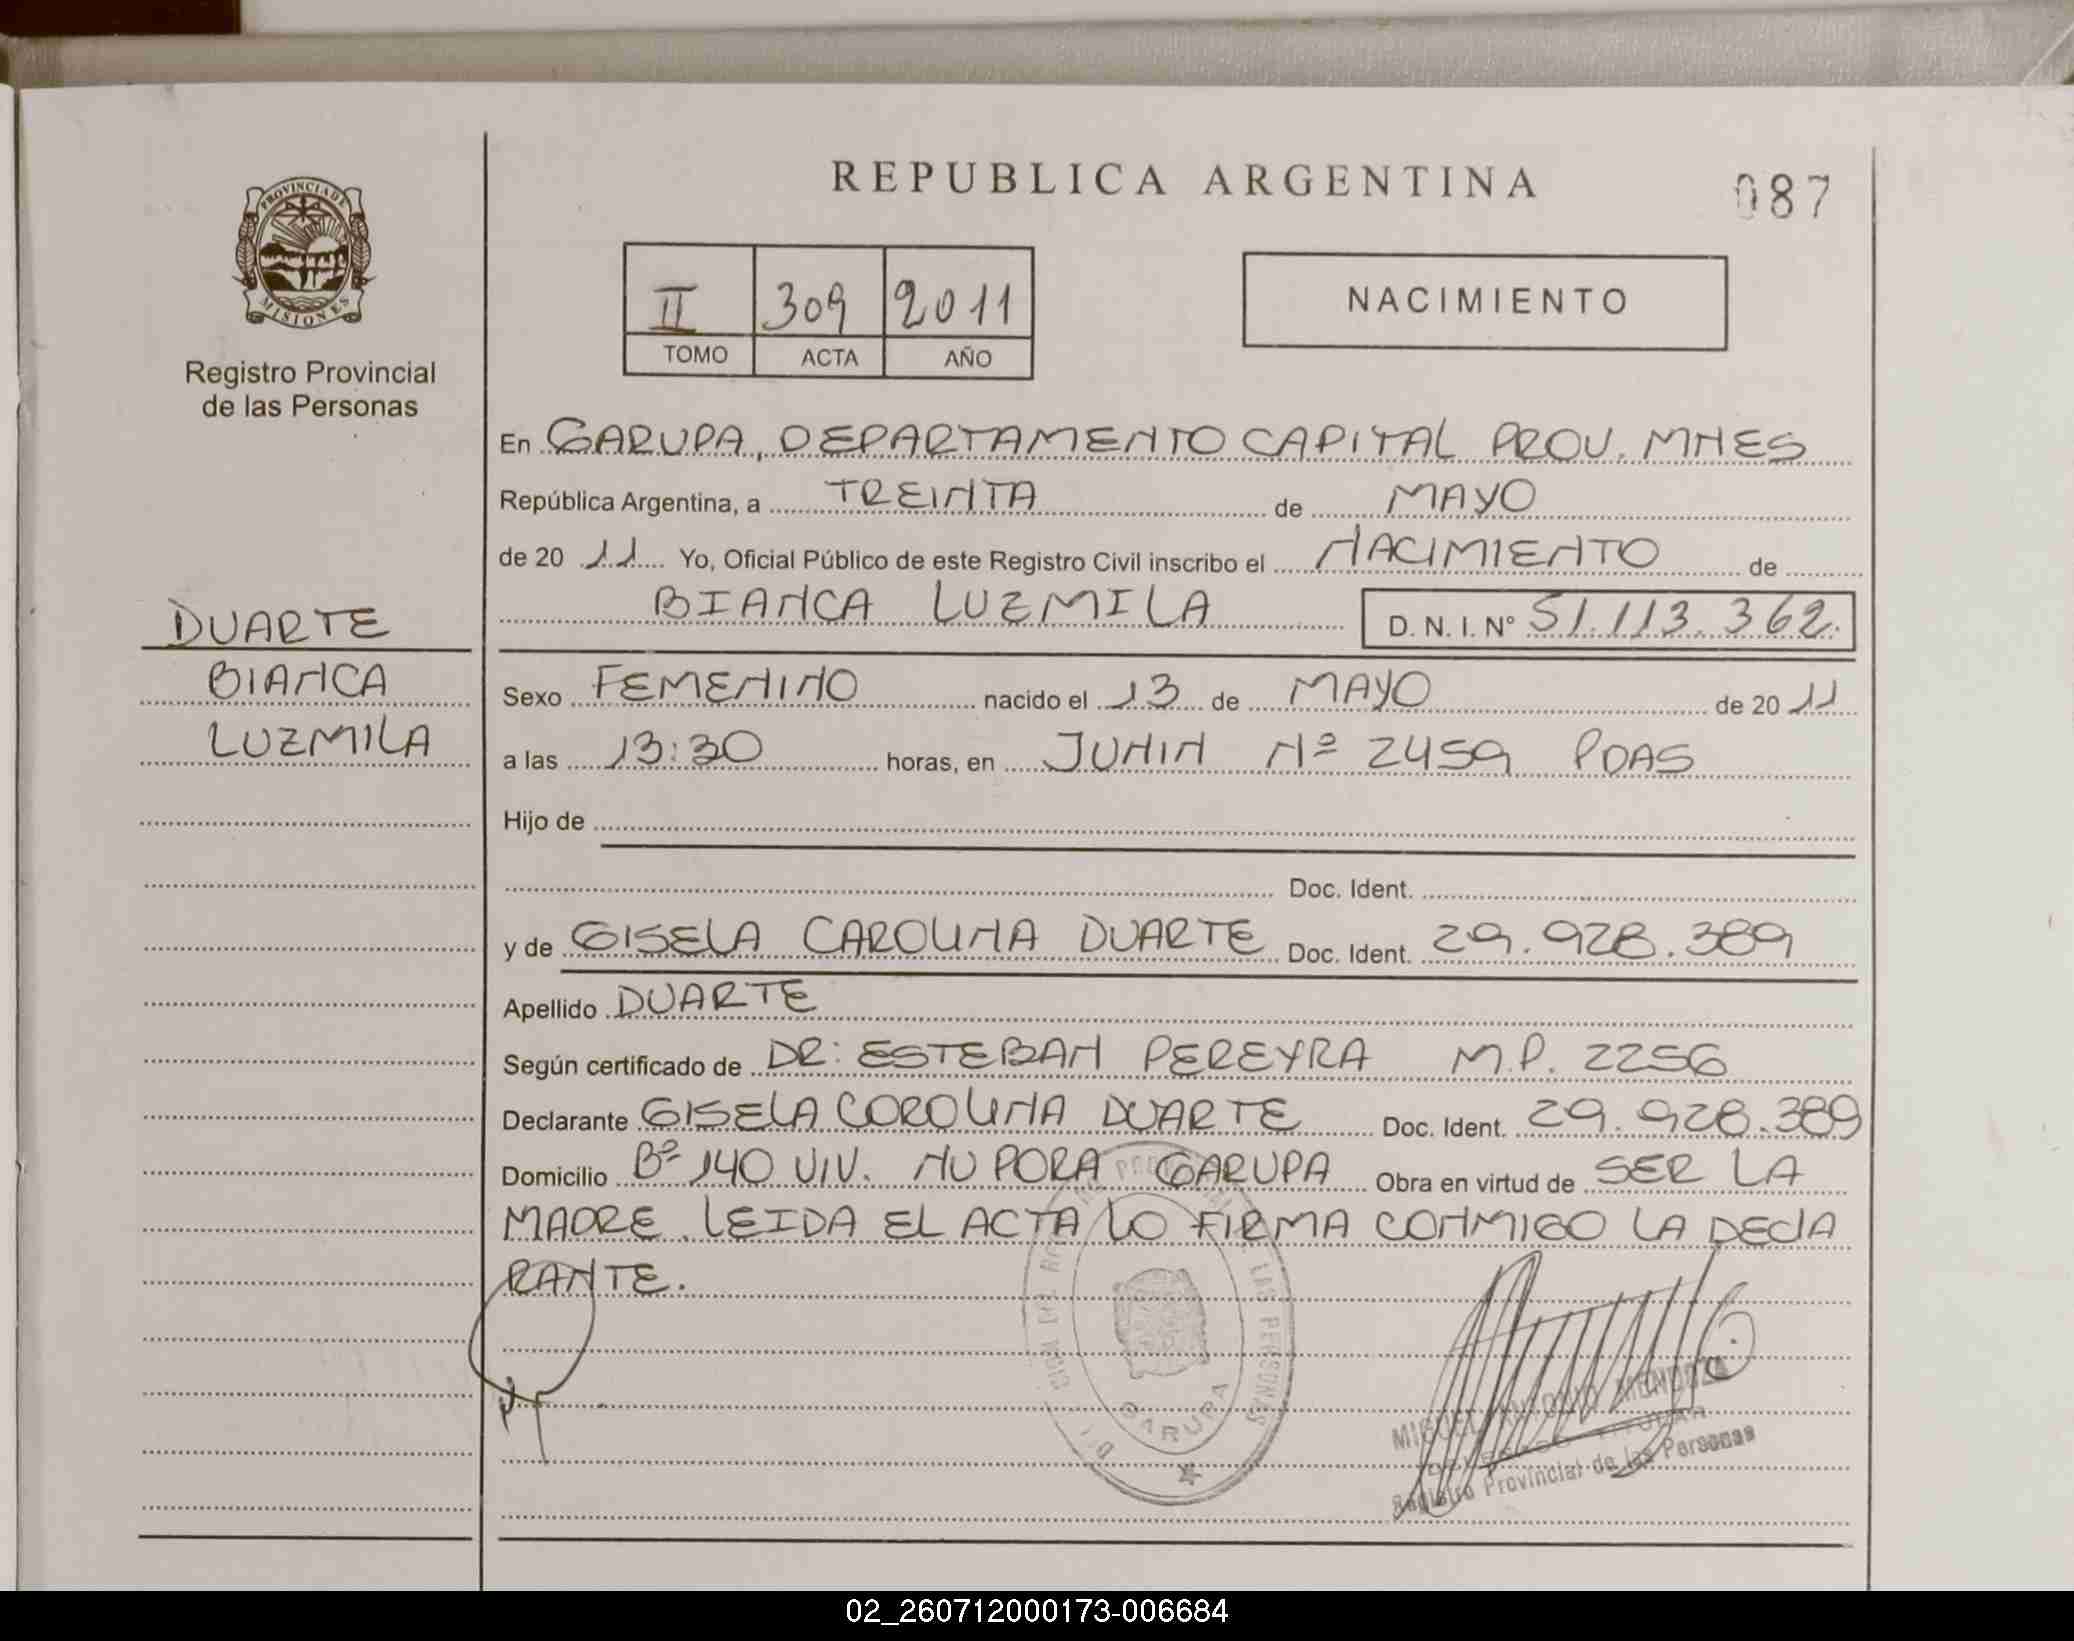 REPUBLICA ARGENTINA
087
PROVINCIA DE
MISIONES
Registro Provincial
de las Personas
II 309 2011
TOMO ACTA AÑO
NACIMIENTO
En GARUPA, DEPARTAMENTO CAPITAL PROV. MNES
República Argentina, a TREINTA de MAYO
de 20 11 Yo, Oficial Público de este Registro Civil inscribo el NACIMIENTO de
BIANCA LUZMILA D. N. I. Nº 51.113.362.
DUARTE
BIANCA
LUZMILA
Sexo FEMENINO nacido el 13 de MAYO de 20 11
a las 13:30 horas, en JUNIN Nº 2459 PDAS
Hijo de
Doc. Ident.
y de GISELA CAROLINA DUARTE Doc. Ident. 29.928.389
Apellido DUARTE
Según certificado de DR: ESTEBAN PEREYRA M.P. 2256
Declarante GISELA COROLINA DUARTE Doc. Ident. 29.928.389
Domicilio Bº 140 VIV. ÑU PORA GARUPA Obra en virtud de SER LA
MADRE. LEIDA EL ACTA LO FIRMA CONMIGO LA DECLA
RANTE.
LAS PERSONAS
GARUPA
MIGUEL ANTONIO MENDOZA
Registro Provincial de las Personas
02_260712000173-006684